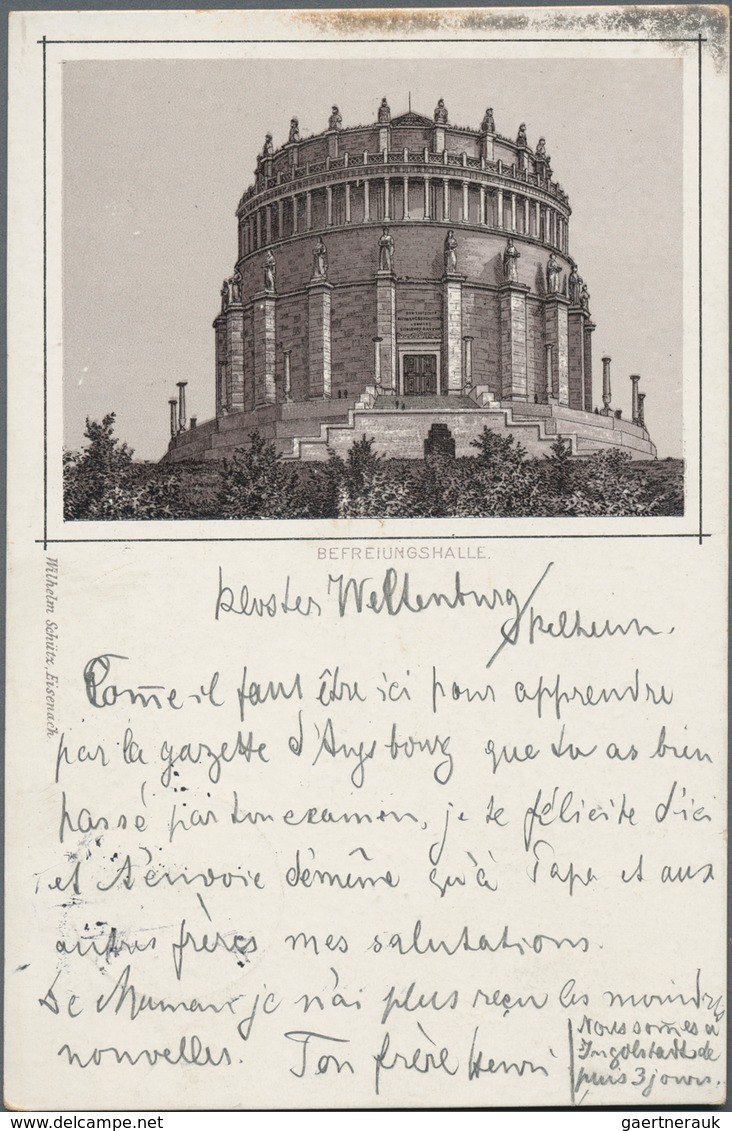 BEFREIUNGSHALLE.
Wilhelm Schütz, Eisenach.
Kloster Weltenburg / Kelheim.
Com̅e il faut être ici pour apprendre
par la gazette d'Augsbourg que tu as bien
passé par ton examen, je te félicite d'ici
et t'envoie de même qu'à Papa et aux
autres frères mes salutations.
De Maman je n'ai plus reçu les moindres
nouvelles. Ton frère Henri
Nous som̅es à
Ingolstadt de
puis 3 jours.
gaertnerauk